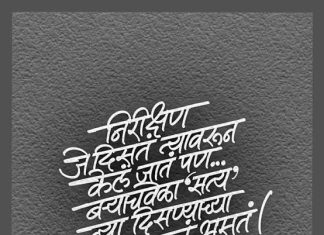 निरीक्षण
जे दिसतं त्यावरून
केलं जातं पण...
बऱ्याचवेळा ‘सत्य’
त्या दिसण्याच्या
असतं